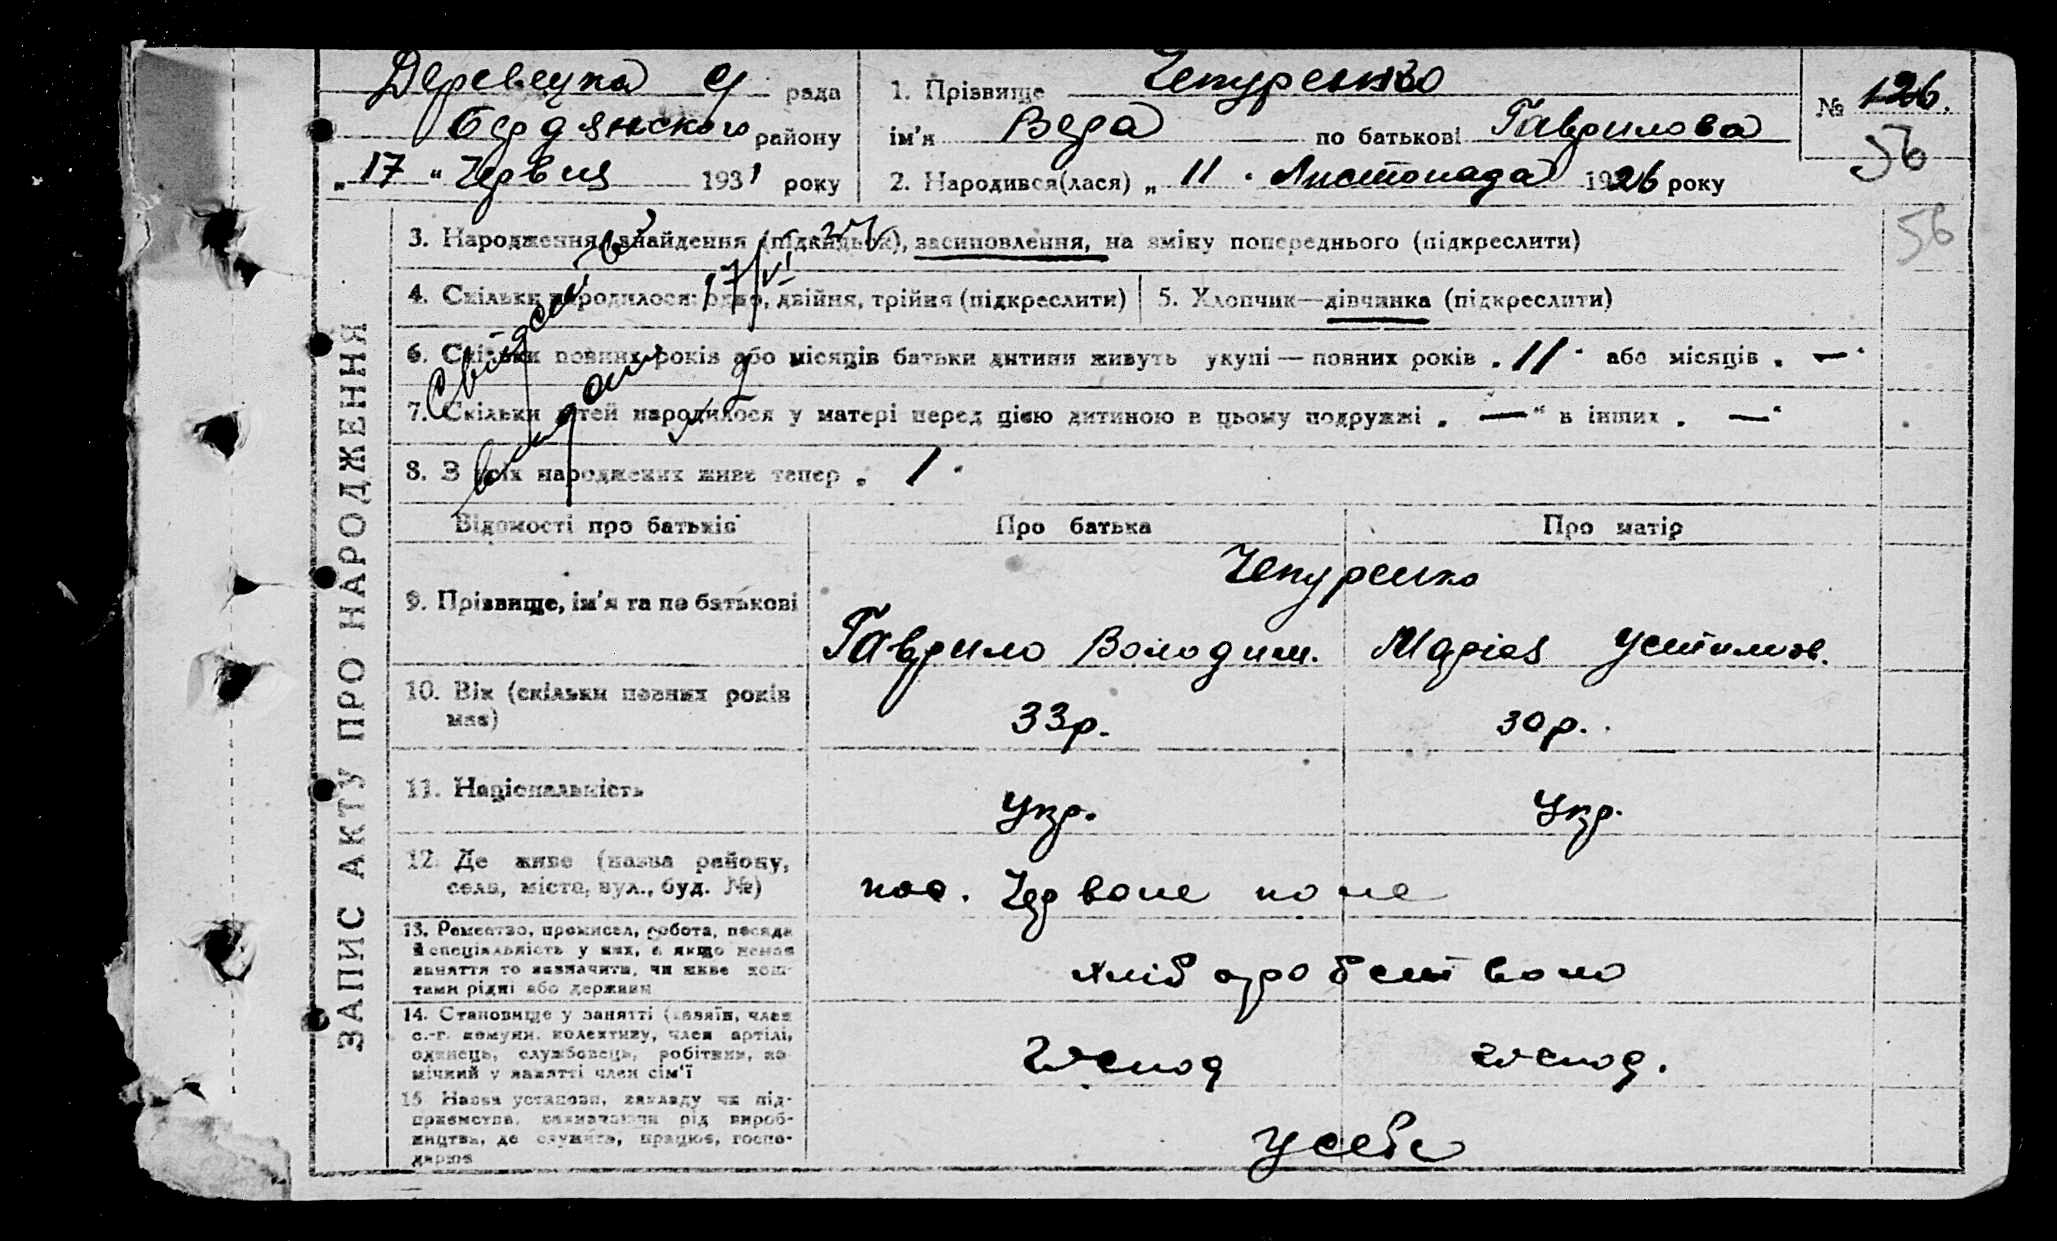 Деревецка с/ рада
Бердянського району
„ 17 “ Червця 1931 року
1. Прізвище Чепуренко
ім'я Вера по батькові Гаврилова
2. Народився(лася) „ 11 “ Листопада 1926 року
№ 126.
56
56
ЗАПИС АКТУ ПРО НАРОДЖЕННЯ
3. Народження, знайдення (підкидьок), засиновлення, на зміну попереднього (підкреслити)
4. Скільки народилося: одно, двійня, трійня (підкреслити)
5. Хлопчик—дівчинка (підкреслити)
6. Скільки повних років або місяців батьки дитини живуть укупі — повних років „ 11 “ або місяців „ — “
7. Скільки дітей народилося у матері перед цією дитиною в цьому подружжі „ — “ в інших „ — “
8. З усіх народжених живе тепер „ 1 “
17/VI
Відомості про батьків Про батька Про матір
9. Прізвище, ім'я та по батькові
Чепуренко
Гаврило Володим. Марія Устимов.
10. Вік (скільки повних років
має)
33р. 30р.
11. Національність
Укр. Укр.
12. Де живе (назва району,
села, міста, вул., буд. №)
пос. Червоне поле
13. Ремество, промисел, робота, посада
й спеціяльність у них, а якщо немає
заняття то зазначити, чи живе кош-
тами рідні або держави
хліборобством
14. Становище у занятті (хазяїн, член
с.-г. комуни, колективу, член артілі,
одинець, службовець, робітник, по-
мічний у занятті член сім'ї
господ господ.
15 Назва установи, закладу чи під-
приємства, зазначаючи рід вироб-
ництва, де служить, працює, госпо-
дарює
У себе